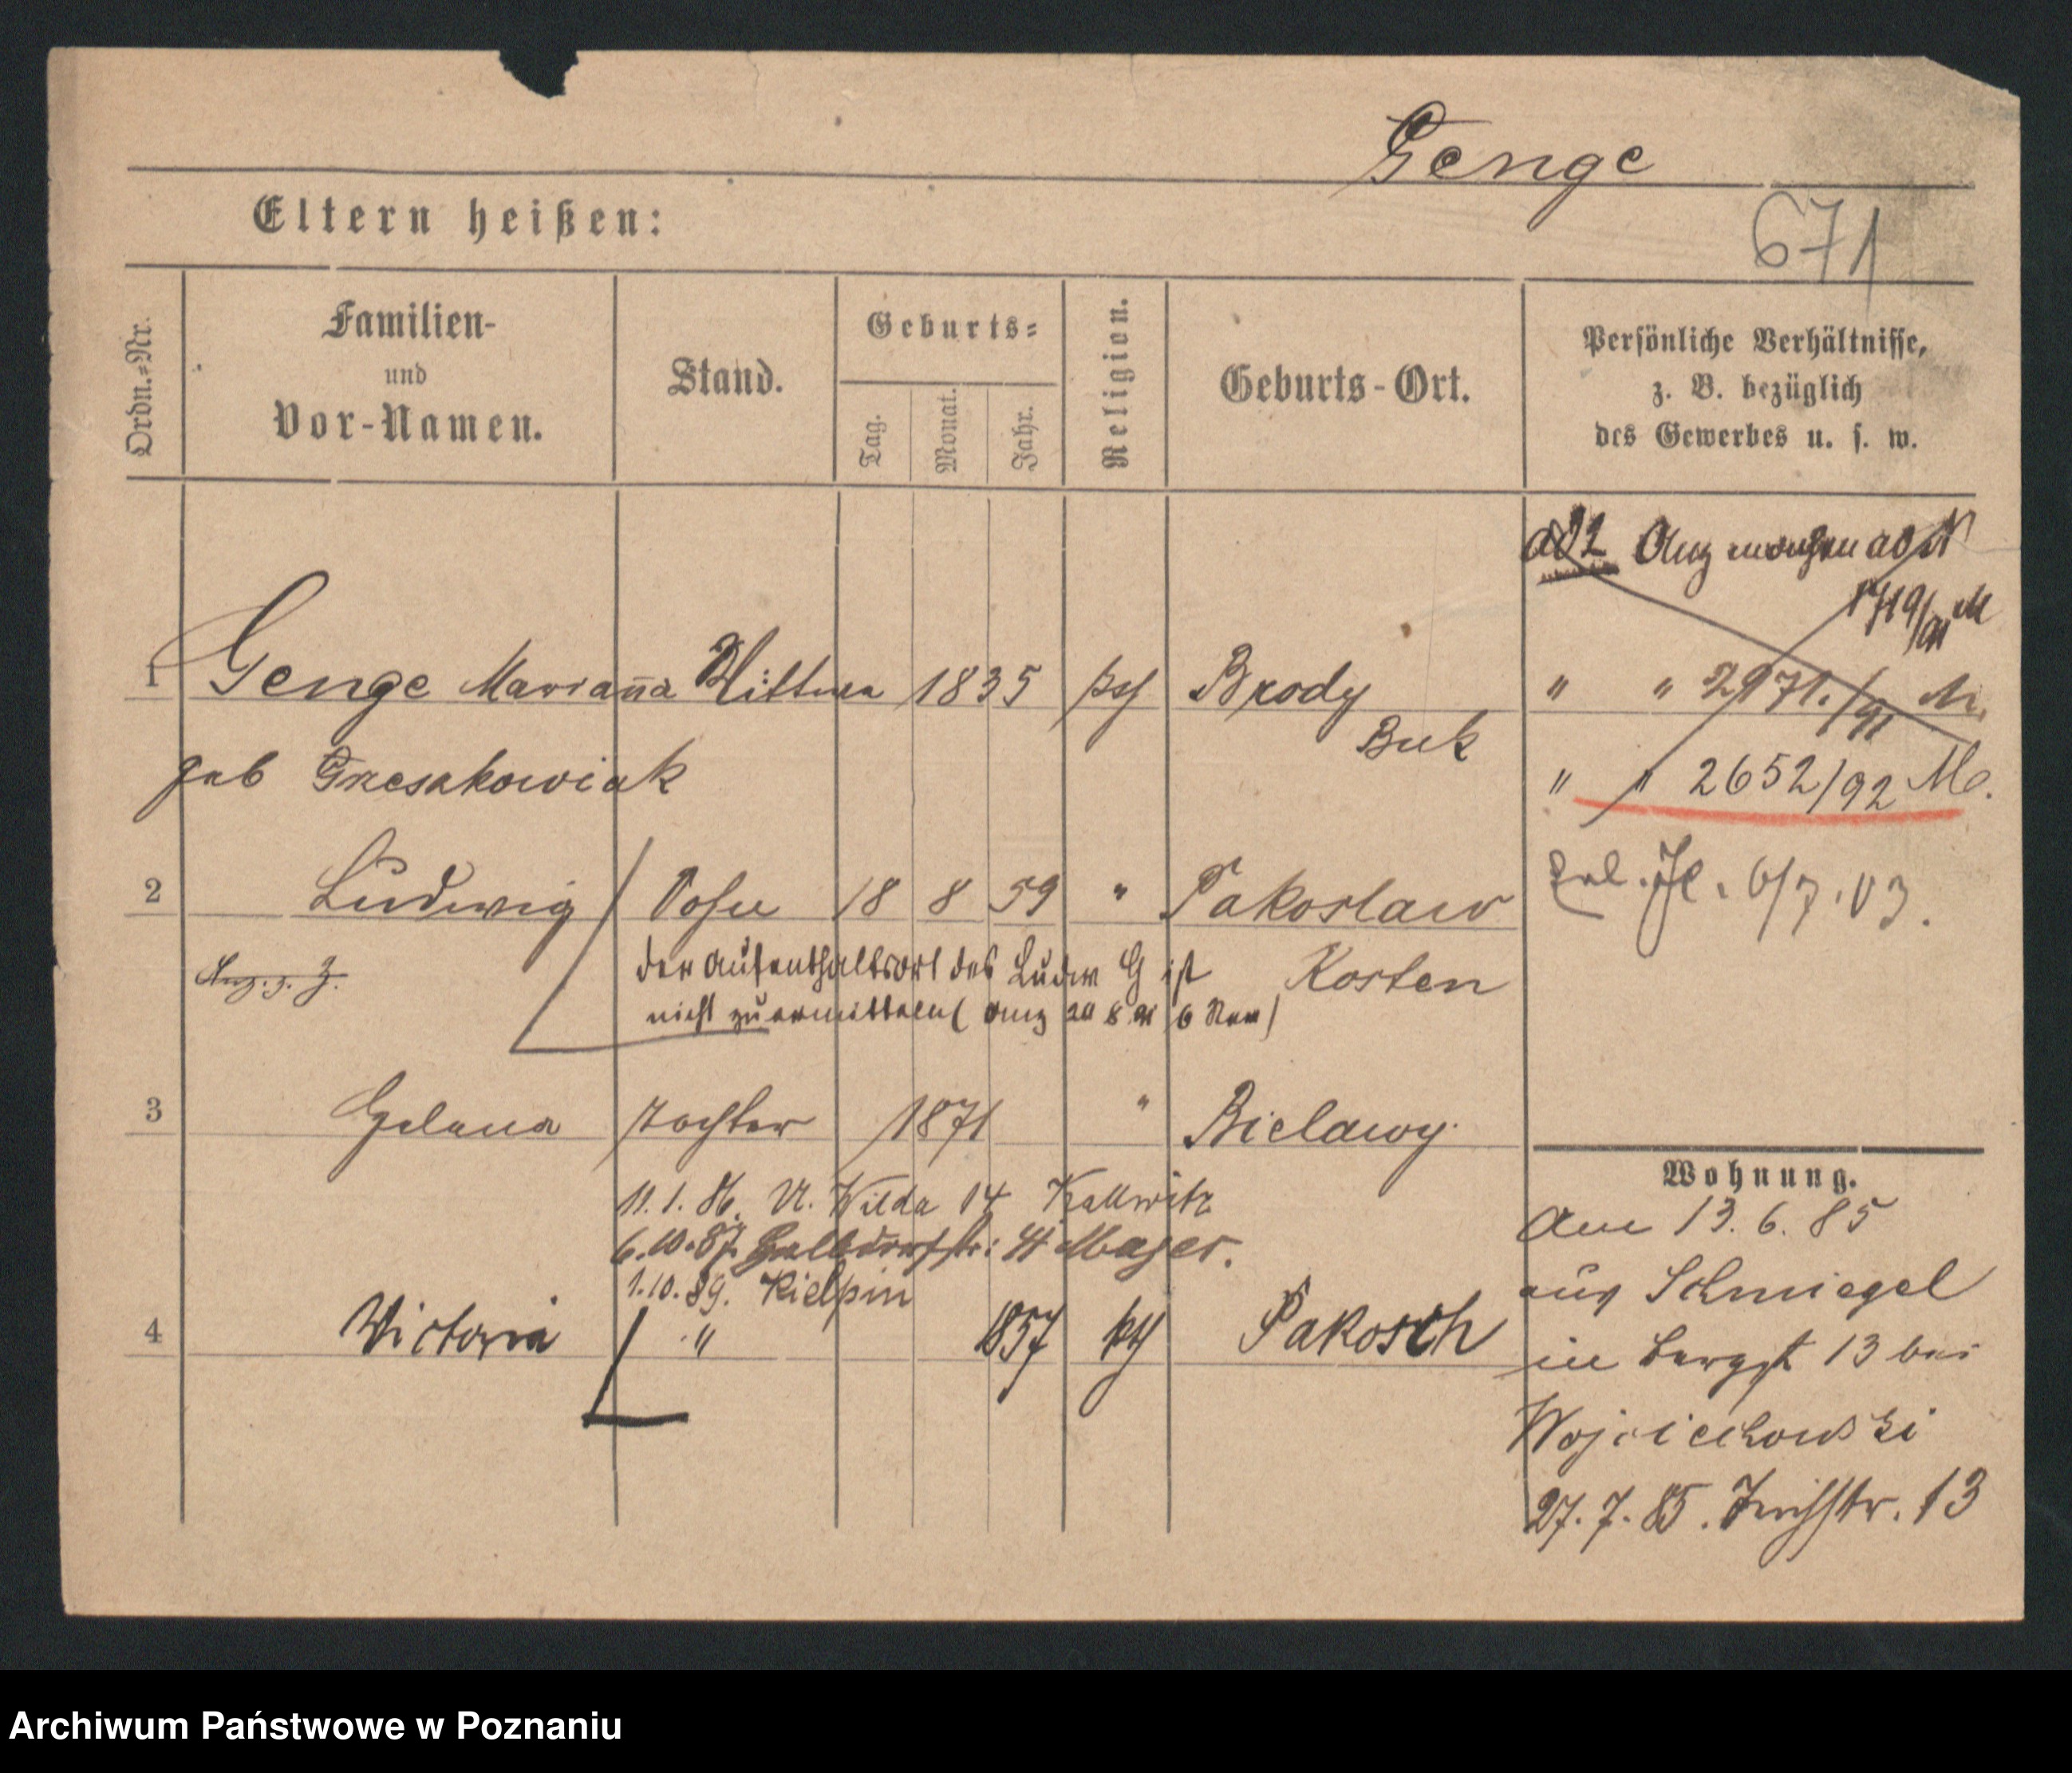 Genge
Eltern heißen:
671
Ordn.-Nr.
Familien-
und
Vor-Namen.
Stand.
Geburts-
Tag.
Monat.
Jahr.
Religion.
Geburts-Ort.
Persönliche Verhältnisse,
z. B. bezüglich
des Gewerbes u. s. w.
ad 2
1719/91 M
1 Genge Marianna 1835 Brody
Buk
" " 2971./91 M.
geb Grzeskowiak
" " 2652/92 M.
2 Ludwig Sohn 18 8 59 " Pakoslaw
6/7.03.
der Aufenthaltsort des Ludw G ist
Kosten
nicht zu ermitteln (
3 Helena Tochter 1871 " Bielawy
11.1.86. U. Wilda 14 Kallwitz
6.10.87. Mayer.
1.10.89. Kielpin
4 Victoria " 1857 kth Pakosch
Wohnung.
Am 13.6.85
aus Schmiegel
in Bergst 13 bei
Wojciechowski
27.7.85. 13
Archiwum Państwowe w Poznaniu